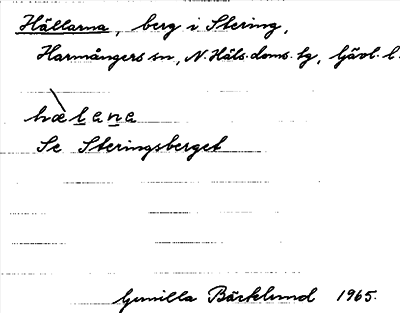 Hällarna, berg i Stering,
Harmångers sn, N. Häls. doms. tg, Gävl. l.
hæl̲an̲a
Se Steringsberget
Gunilla Bäcklund 1965.